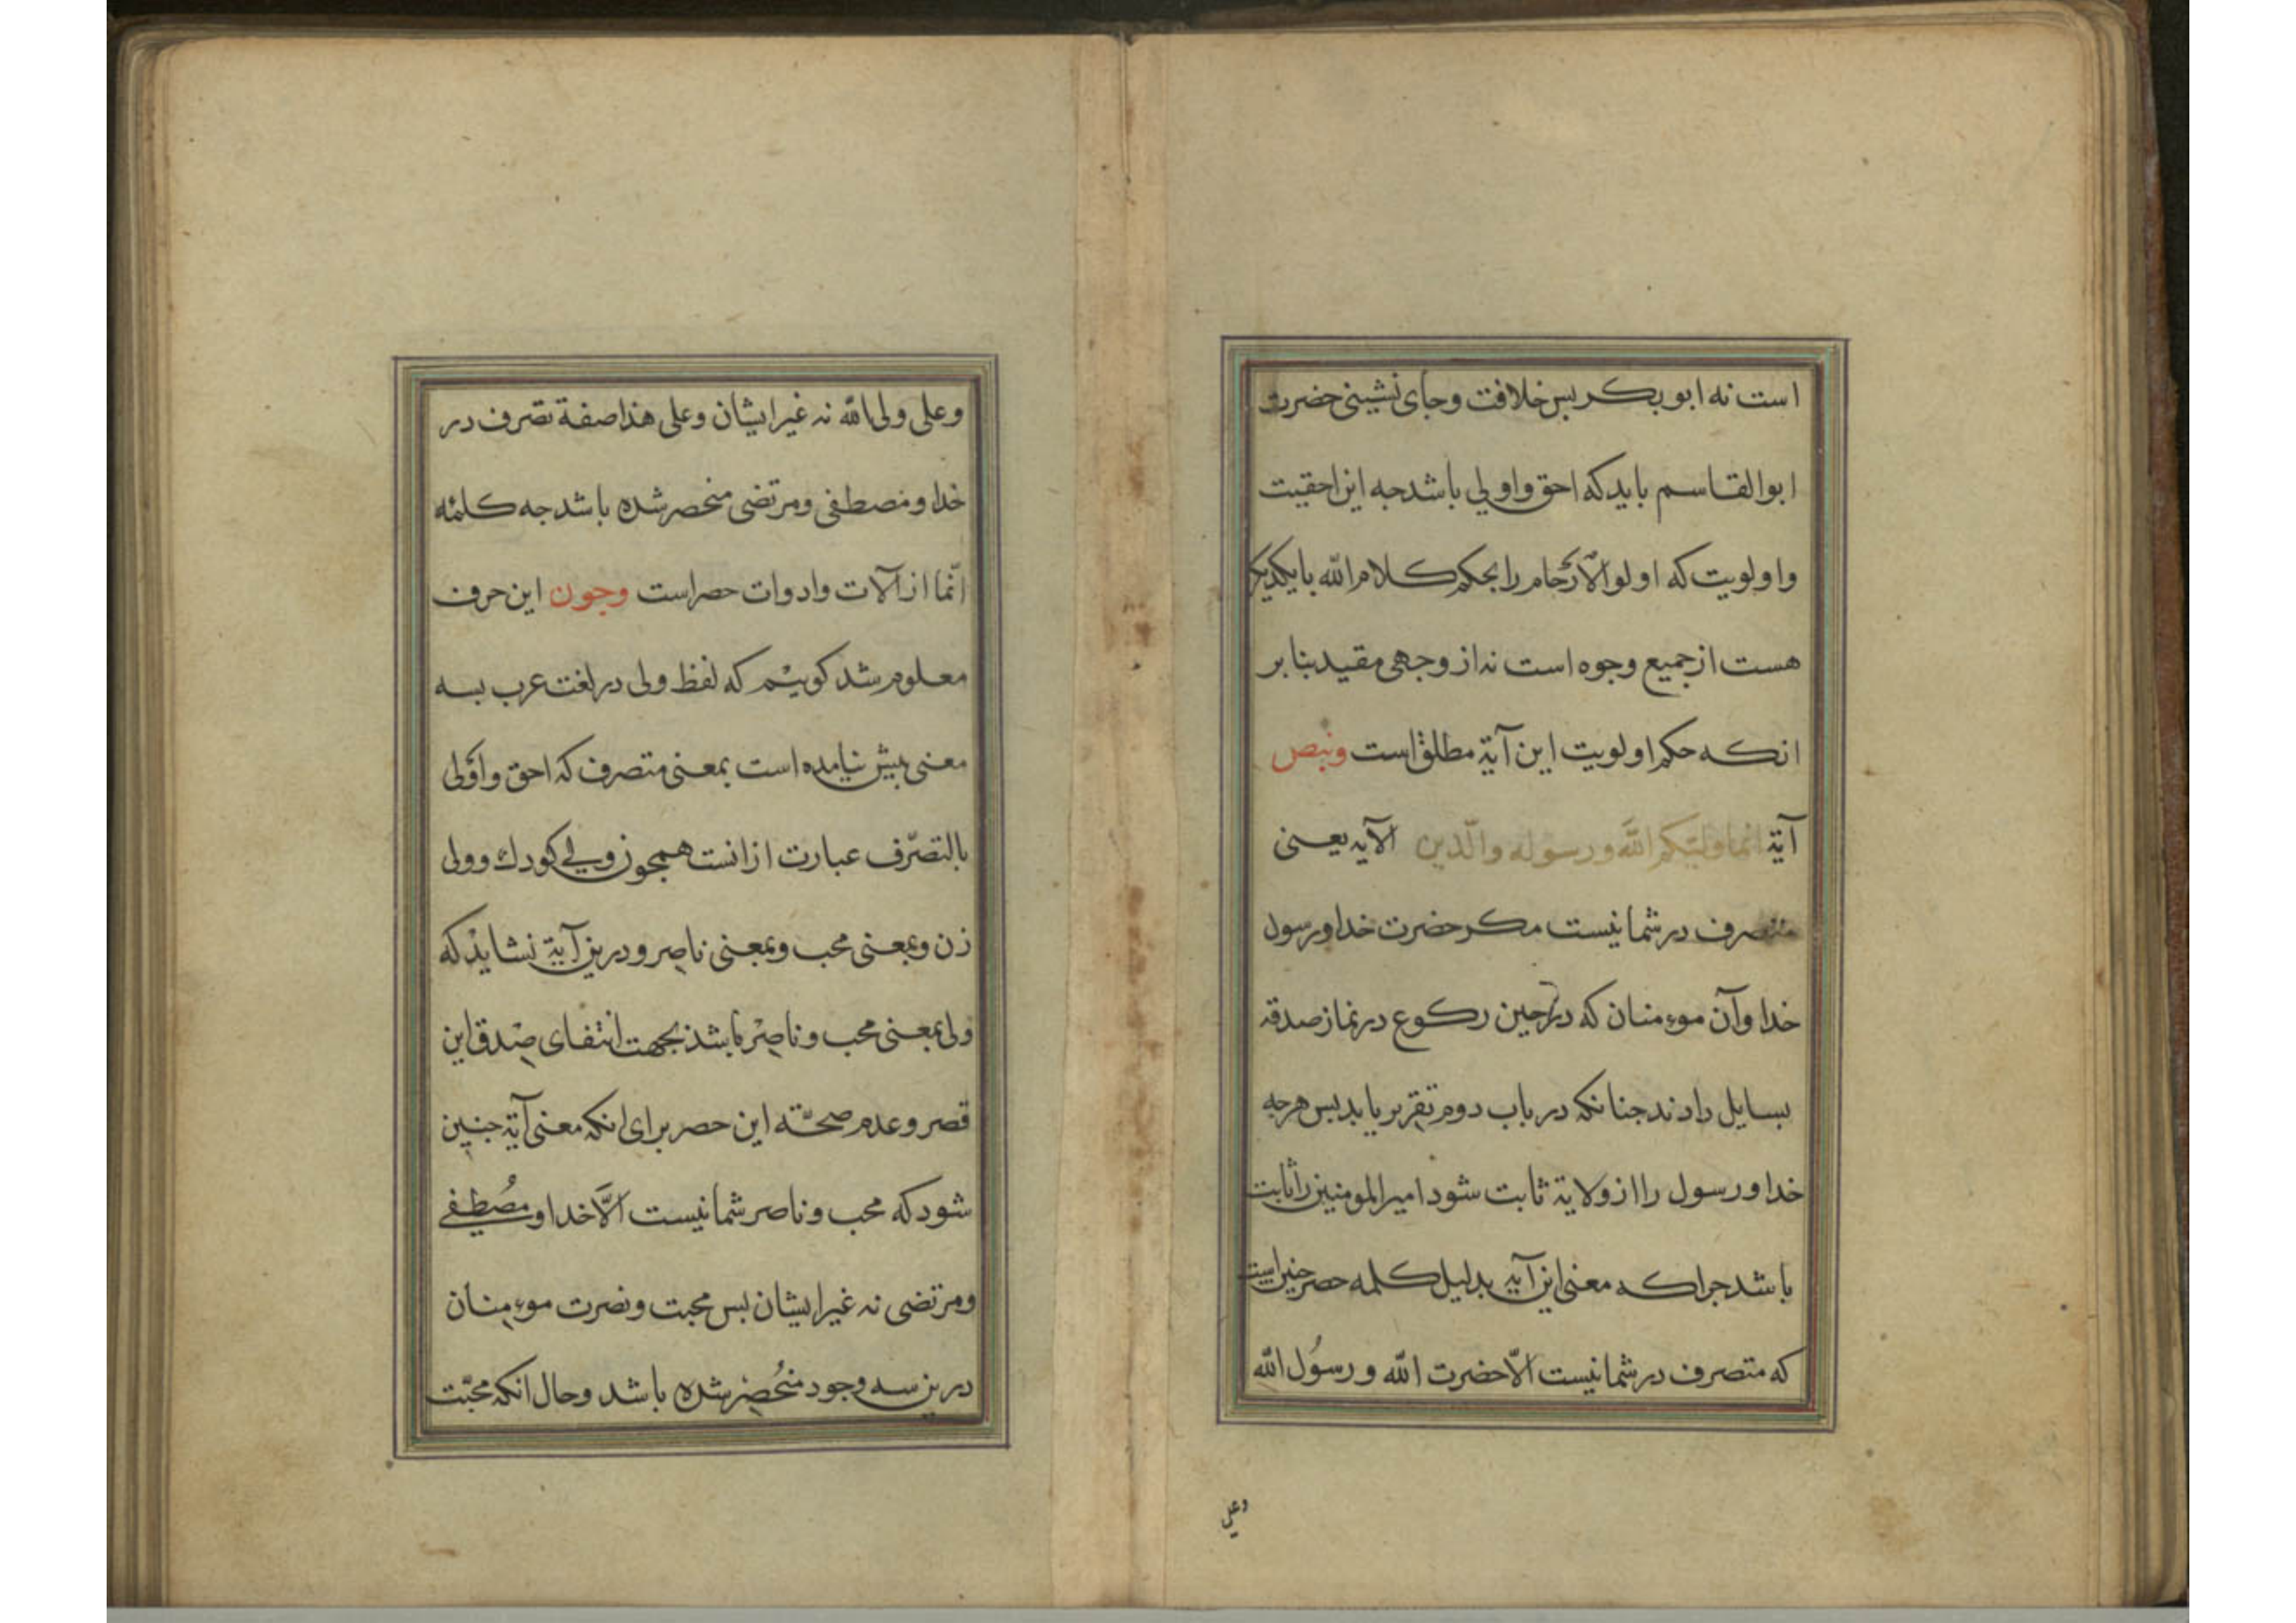 است نه ابو بکر بس خلافت وجای نشینی حضرت
ابو القاسم باید که احق واولی باشد جه این احقیت
واولویت که اولو الارحام را بحکم کلام الله با یکدیکر
هست از جمیع وجوه است نه از وجهی مقید بنا بر
انکه حکم اولویت این آیة مطلق است وبنص
آیة انما ولیکم الله ورسوله والذین الآیه یعنی
متصرف در شما نیست مکر حضرت خدا ورسول
خدا وآن موءمنان که در حین رکوع در نماز صدقه
بسایل دادند جنانکه در باب دوم تقریر یابد بس هرجه
خدا ورسول را از ولایة ثابت شود امیر المومنین را ثابت
باشد جرا که معنی این آیه بدلیل کلمه حصر جنین است
که متصرف در شما نیست الّا حضرت الله ورسُول الله
وعلی
وعلی ولی الله نه غیر ایشان وعلی هذا صفة تصرف در
خدا ومصطفی ومرتضی منحصر شده باشد جه کلمه
انّما از آلات وادوات حصر است وجون این حرف
معلوم شد کوییم که لفظ ولی در لغت عرب بسه
معنی بیش نیامده است بمعنی متصرف که احق واَولی
بالتصرّف عبارت از انست همجون ولی کودك وولی
زن وبمعنی محب وبمعنی ناصر ودرین آیة نشاید که
ولی بمعنی محب وناصر باشد بجهت انتفای صِدق این
قصر وعدم صحّة این حصر برای انکه معنی آیة جنین
شود که محب وناصر شما نیست الّا خدا ومُصطفی
ومرتضی نه غیر ایشان بس محبت ونصرت موءمِنان
درین سه وجود منحُصِر شده باشد وحال انکه محبّت